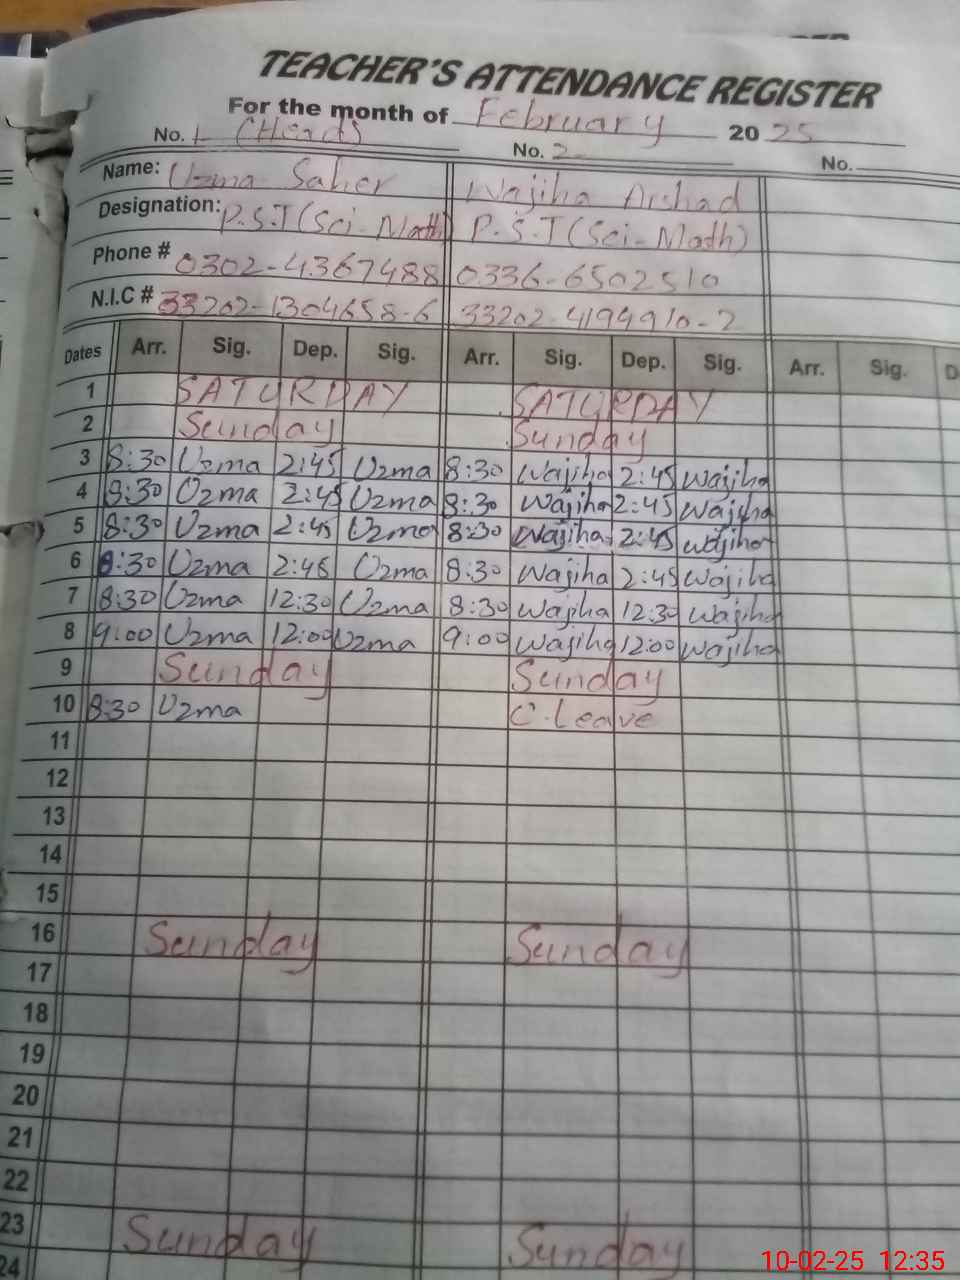 TEACHER'S ATTENDANCE REGISTER
For the month of February 20 25
No. 1 (Head) No. 2 No.
Name: Uzma Saher Wajiha Arshad
Designation: P.S.T (Sci-Math) P.S.T (Sci-Math)
Phone # 0302-4367488 0336-6502510
N.I.C # 33202-1304658-6 33202-4194910-2
Dates Arr. Sig. Dep. Sig. Arr. Sig. Dep. Sig. Arr. Sig. D
1 SATURDAY SATURDAY
2 Sunday Sunday
3 8:30 Uzma 2:45 Uzma 8:30 Wajiha 2:45 Wajiha
4 8:30 Uzma 2:45 Uzma 8:30 Wajiha 2:45 Wajiha
5 8:30 Uzma 2:45 Uzma 8:30 Wajiha 2:45 Wajiha
6 8:30 Uzma 2:45 Uzma 8:30 Wajiha 2:45 Wajiha
7 8:30 Uzma 12:30 Uzma 8:30 Wajiha 12:30 Wajiha
8 9:00 Uzma 12:00 Uzma 9:00 Wajiha 12:00 Wajiha
9 Sunday Sunday
10 8:30 Uzma C.Leave
11
12
13
14
15
16 Sunday Sunday
17
18
19
20
21
22
23 Sunday Sunday
24
10-02-25 12:35